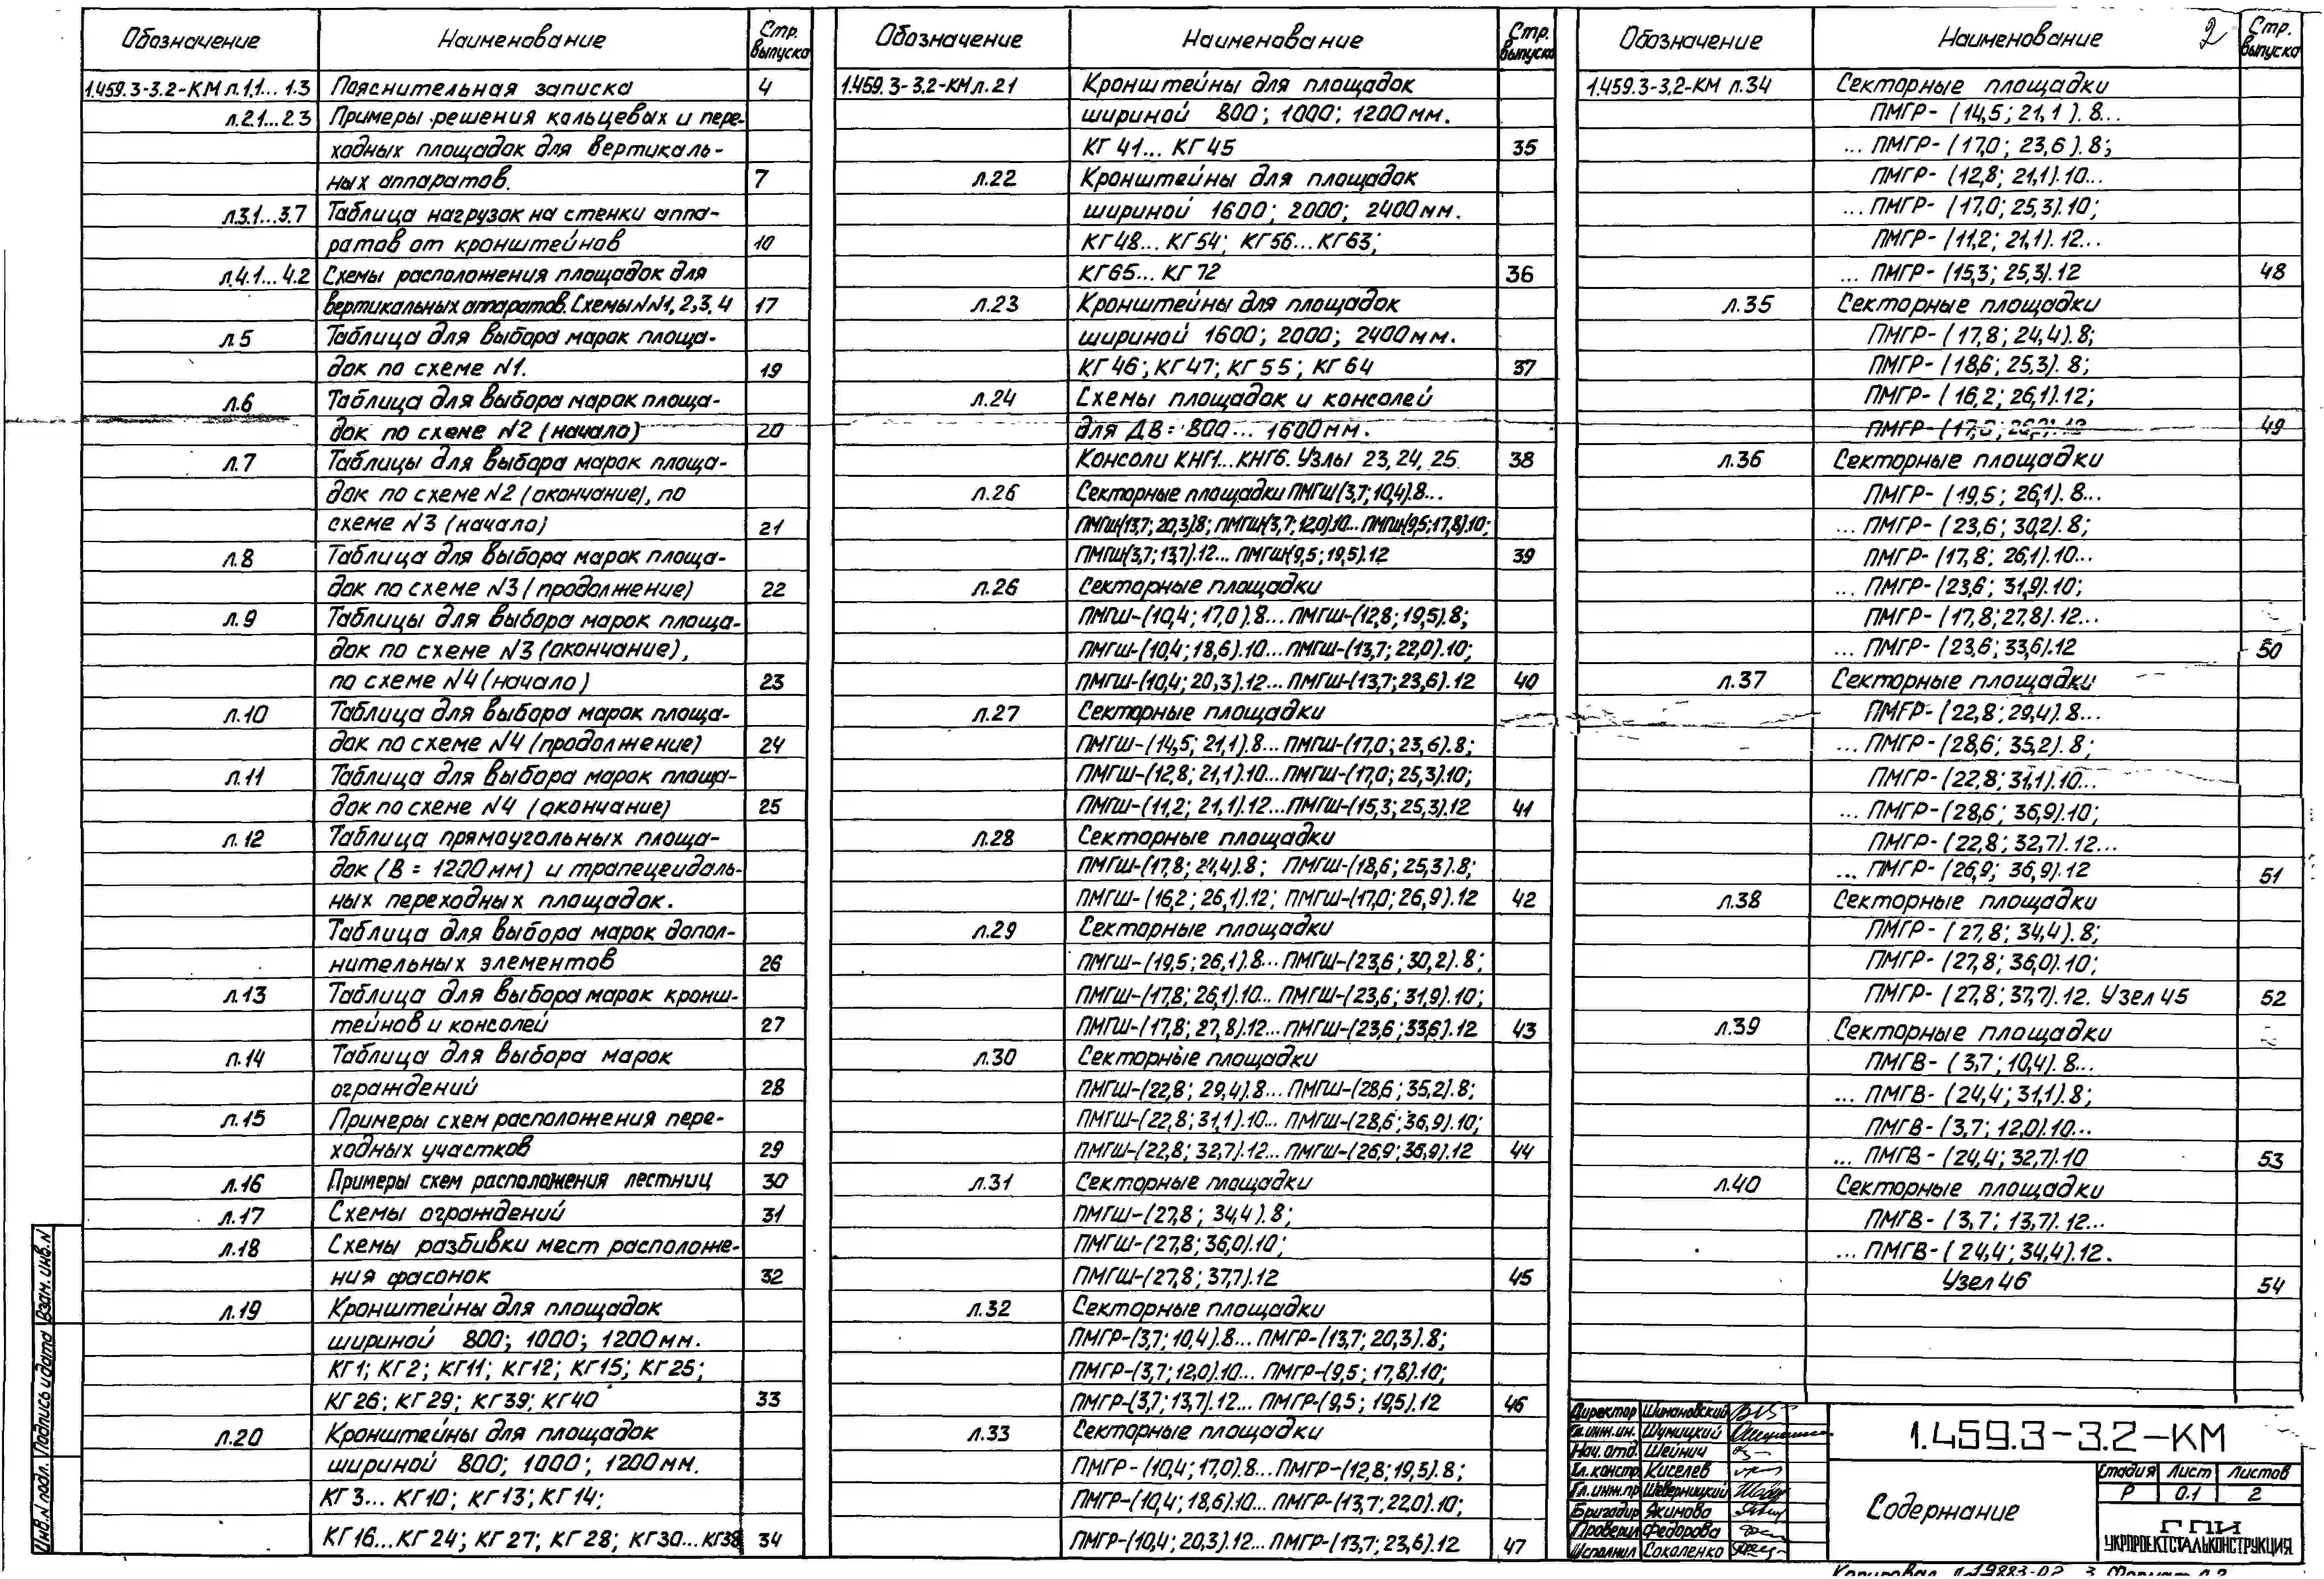 Обозначение Наименование Стр. выпуска
1.459.3-3.2-КМ л.1.1... 1.3 Пояснительная записка 4
л.2.1...2.3 Примеры решения кольцевых и пере-
ходных площадок для вертикаль-
ных аппаратов. 7
л.3.1...3.7 Таблица нагрузок на стенки аппа-
ратов от кронштейнов 10
л.4.1...4.2 Схемы расположения площадок для
вертикальных аппаратов. Схемы №№1, 2, 3, 4 17
л.5 Таблица для выбора марок площа-
док по схеме №1. 19
л.6 Таблица для выбора марок площа-
док по схеме №2 (начало) 20
л.7 Таблицы для выбора марок площа-
док по схеме №2 (окончание), по
схеме №3 (начало) 21
л.8 Таблица для выбора марок площа-
док по схеме №3 (продолжение) 22
л.9 Таблицы для выбора марок площа-
док по схеме №3 (окончание),
по схеме №4 (начало) 23
л.10 Таблица для выбора марок площа-
док по схеме №4 (продолжение) 24
л.11 Таблица для выбора марок площа-
док по схеме №4 (окончание) 25
л.12 Таблица прямоугольных площа-
док (В = 1200 мм) и трапецеидаль-
ных переходных площадок.
Таблица для выбора марок допол-
нительных элементов 26
л.13 Таблица для выбора марок кронш-
тейнов и консолей 27
л.14 Таблица для выбора марок
ограждений 28
л.15 Примеры схем расположения пере-
ходных участков 29
л.16 Примеры схем расположения лестниц 30
л.17 Схемы ограждений 31
л.18 Схемы разбивки мест расположе-
ния фасонок 32
л.19 Кронштейны для площадок
шириной 800; 1000; 1200мм.
КГ1; КГ2; КГ11; КГ12; КГ15; КГ25;
КГ26; КГ29; КГ39; КГ40 33
л.20 Кронштейны для площадок
шириной 800; 1000; 1200мм.
КГ3... КГ10; КГ13; КГ14;
КГ16...КГ24; КГ27; КГ28; КГ30...КГ38 34
Обозначение Наименование Стр. выпуска
1.459.3-3.2-КМ л.21 Кронштейны для площадок
шириной 800; 1000; 1200мм.
КГ41... КГ45 35
л.22 Кронштейны для площадок
шириной 1600; 2000; 2400мм.
КГ48... КГ54; КГ56...КГ63;
КГ65... КГ72 36
л.23 Кронштейны для площадок
шириной 1600; 2000; 2400мм.
КГ46; КГ47; КГ55; КГ64 37
л.24 Схемы площадок и консолей
для ДВ= 800... 1600мм.
Консоли КНГ1...КНГ6. Узлы 23, 24, 25 38
л.26 Секторные площадки ПМГШ(3,7; 10,4).8...
ПМГШ(13,7; 20,3)8; ПМГШ(3,7; 12,0).10...ПМГШ(9,5; 17,8).10;
ПМГШ(3,7; 13,7).12... ПМГШ(9,5; 19,5).12 39
л.26 Секторные площадки
ПМГШ-(10,4; 17,0).8... ПМГШ-(12,8; 19,5).8;
ПМГШ-(10,4; 18,6).10...ПМГШ-(13,7; 22,0).10;
ПМГШ-(10,4; 20,3).12...ПМГШ-(13,7; 23,6).12 40
л.27 Секторные площадки
ПМГШ-(14,5; 21,1).8... ПМГШ-(17,0; 23,6).8;
ПМГШ-(12,8; 21,1).10...ПМГШ-(17,0; 25,3).10;
ПМГШ-(11,2; 21,1).12...ПМГШ-(15,3; 25,3).12 41
л.28 Секторные площадки
ПМГШ-(17,8; 24,4).8; ПМГШ-(18,6; 25,3).8;
ПМГШ-(16,2; 26,1).12; ПМГШ-(17,0; 26,9).12 42
л.29 Секторные площадки
ПМГШ-(19,5; 26,1).8...ПМГШ-(23,6; 30,2).8;
ПМГШ-(17,8; 26,1).10... ПМГШ-(23,6; 31,9).10;
ПМГШ-(17,8; 27,8).12...ПМГШ-(23,6; 33,6).12 43
л.30 Секторные площадки
ПМГШ-(22,8; 29,4).8... ПМГШ-(28,6; 35,2).8;
ПМГШ-(22,8; 31,1).10... ПМГШ-(28,6; 36,9).10;
ПМГШ-(22,8; 32,7).12...ПМГШ-(26,9; 36,9).12 44
л.31 Секторные площадки
ПМГШ-(27,8; 34,4).8;
ПМГШ-(27,8; 36,0).10;
ПМГШ-(27,8; 37,7).12 45
л.32 Секторные площадки
ПМГР-(3,7; 10,4).8... ПМГР-(13,7; 20,3).8;
ПМГР-(3,7; 12,0).10... ПМГР-(9,5; 17,8).10;
ПМГР-(3,7; 13,7).12... ПМГР-(9,5; 19,5).12 46
л.33 Секторные площадки
ПМГР-(10,4; 17,0).8...ПМГР-(12,8; 19,5).8;
ПМГР-(10,4; 18,6).10... ПМГР-(13,7; 22,0).10;
ПМГР-(10,4; 20,3).12...ПМГР-(13,7; 23,6).12 47
Обозначение Наименование 2 Стр. выпуска
1.459.3-3.2-КМ л.34 Секторные площадки
ПМГР- (14,5; 21,1).8...
... ПМГР- (17,0; 23,6).8;
ПМГР- (12,8; 21,1).10...
... ПМГР- (17,0; 25,3).10;
ПМГР- (11,2; 21,1).12...
... ПМГР- (15,3; 25,3).12 48
л.35 Секторные площадки
ПМГР- (17,8; 24,4).8;
ПМГР- (18,6; 25,3).8;
ПМГР- (16,2; 26,1).12;
ПМГР- (17,0; 26,9).12 49
л.36 Секторные площадки
ПМГР- (19,5; 26,1).8...
... ПМГР- (23,6; 30,2).8;
ПМГР- (17,8; 26,1).10...
... ПМГР- (23,6; 31,9).10;
ПМГР- (17,8; 27,8).12...
... ПМГР- (23,6; 33,6).12 50
л.37 Секторные площадки
ПМГР- (22,8; 29,4).8...
... ПМГР- (28,6; 35,2).8;
ПМГР- (22,8; 31,1).10...
... ПМГР- (28,6; 36,9).10;
ПМГР- (22,8; 32,7).12...
... ПМГР- (26,9; 36,9).12 51
л.38 Секторные площадки
ПМГР- (27,8; 34,4).8;
ПМГР- (27,8; 36,0).10;
ПМГР- (27,8; 37,7).12. Узел 45 52
л.39 Секторные площадки
ПМГВ- (3,7; 10,4).8...
... ПМГВ- (24,4; 31,1).8;
ПМГВ- (3,7; 12,0).10...
... ПМГВ- (24,4; 32,7).10 53
л.40 Секторные площадки
ПМГВ- (3,7; 13,7).12...
... ПМГВ- (24,4; 34,4).12.
Узел 46 54
Директор Шимановский
Гл.инж.ин. Шумицкий
Нач. отд. Шейнич
Гл.констр. Киселев
Гл.инж.пр Шеверницкий
Бригадир Якимова
Проверил Федорова
Исполнил Сокаленко
1.459.3-3.2-КМ
Содержание
Стадия Лист Листов
Р 0.1 2
ГПИ
УКРПРОЕКТСТАЛЬКОНСТРУКЦИЯ
Инв.N подл. Подпись и дата Взам. инв.N
Копировал 19883-02 3 Формат А2